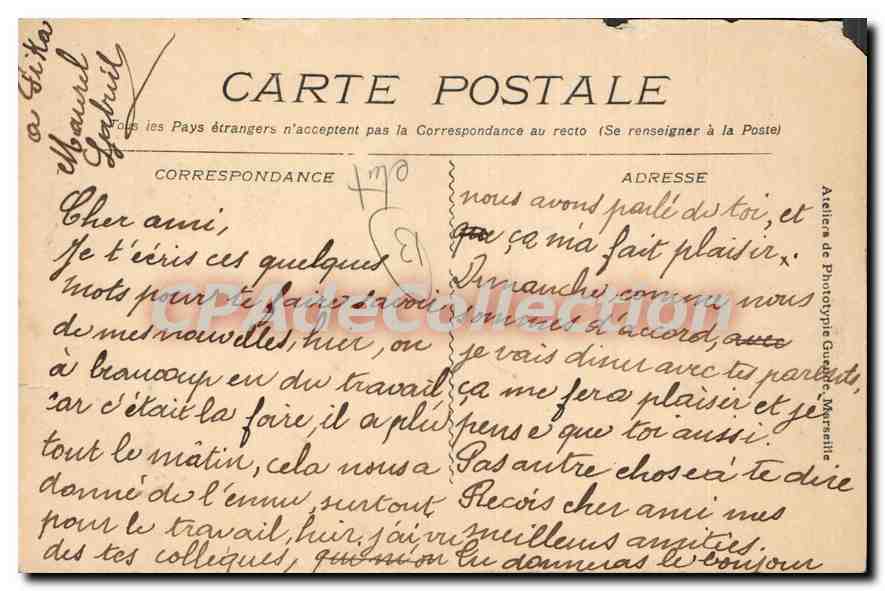 CARTE POSTALE
Tous les Pays étrangers n'acceptent pas la Correspondance au recto (Se renseigner à la Poste)
CORRESPONDANCE
Cher ami,
Je t'écris ces quelques
mots pour te faire savoir
de mes nouvelles, hier, on
à beaucoup eu du travail
car c'était la foire, il a plu
tout le mâtin, cela nous a
donné de l'ennui, surtout
pour le travail, hier, j'ai vu
des tes collègues, qui m'on
ADRESSE
nous avons parlé de toi, et
que ça m'a fait plaisir.
Dimanche, comme nous
sommes d'accord, avec
je vais diner avec tes parents,
ça me fera plaisir et je
pense que toi aussi.
Pas autre chose à te dire
Reçois cher ami mes
meilleurs amitiés.
Tu donneras le bonjour
a
Maurel
Ateliers de Phototypie Marseille
CPADeCollection